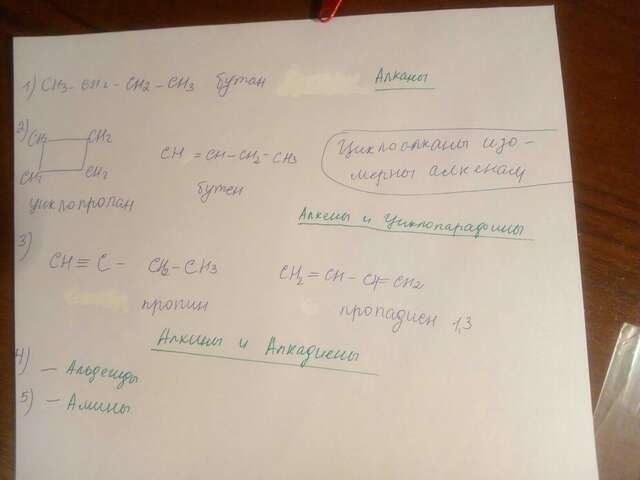 1) CH3 - CH2 - CH2 - CH3 бутан Алканы
2) CH2 CH2
CH2 CH2
циклопропан
CH = CH - CH2 - CH3
бутен
Циклоалканы изо-
мерны алкенам
Алкены и Циклопарафины
3)
CH ≡ C - CH2 - CH3
пропин
CH2 = CH - CH = CH2
пропадиен 1,3
Алкины и Алкадиены
4) - Альдегиды
5) - Амины